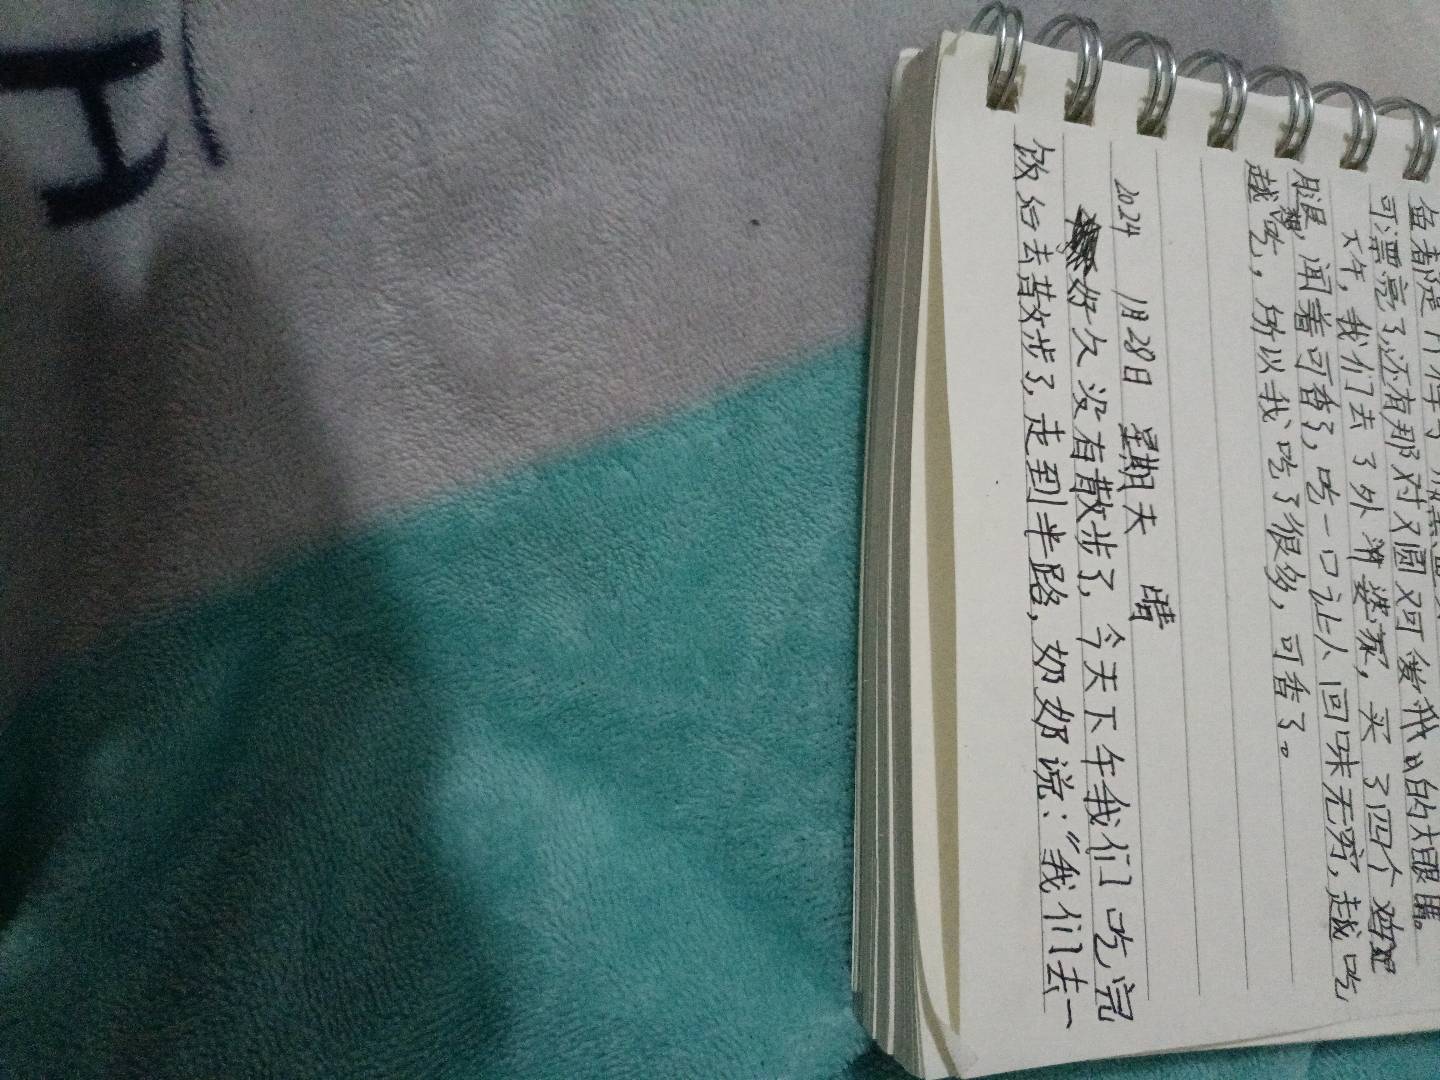 可漂亮了,还有那对又圆又可爱的大眼睛。
下午,我们去了外婆家,买了四个
腿,闻着可香了,吃一口让人回味无穷,越吃
越想吃,所以我吃了很多,可香了。
2024 1月28日 星期天 晴
好久没有散步了,今天下午我们吃完
饭后去散步了,走到半路,奶奶说:“我们去一